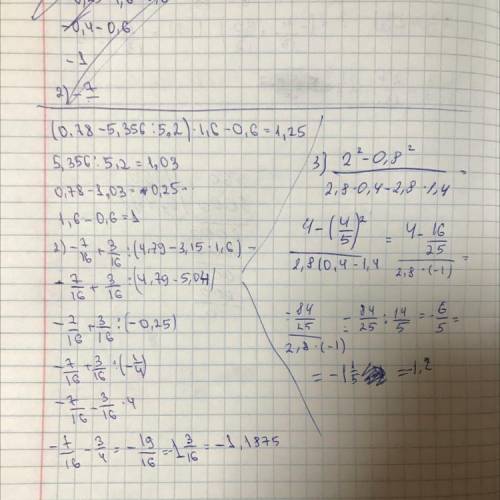 -0,4-0,6
-1
2) -7
(0,78-5,356:5,2)·1,6-0,6=1,25
5,356:5,2=1,03
0,78-1,03=-0,25
1,6-0,6=1
2) -7/16+3/16:(4,79-3,15·1,6)-
-7/16+3/16:(4,79-5,04)
-7/16+3/16:(-0,25)
-7/16+3/16:(-1/4)
-7/16-3/16·4
-7/16-3/4=-19/16=-1 3/16=-1,1875
3) 2²-0,8²/2,8·0,4-2,8·1,4=
4-(4/5)²/2,8(0,4-1,4=4-16/25/2,8·(-1)=
=84/25/2,8·(-1)=-84/25:14/5=-6/5=
=-1 1/5=-1,2